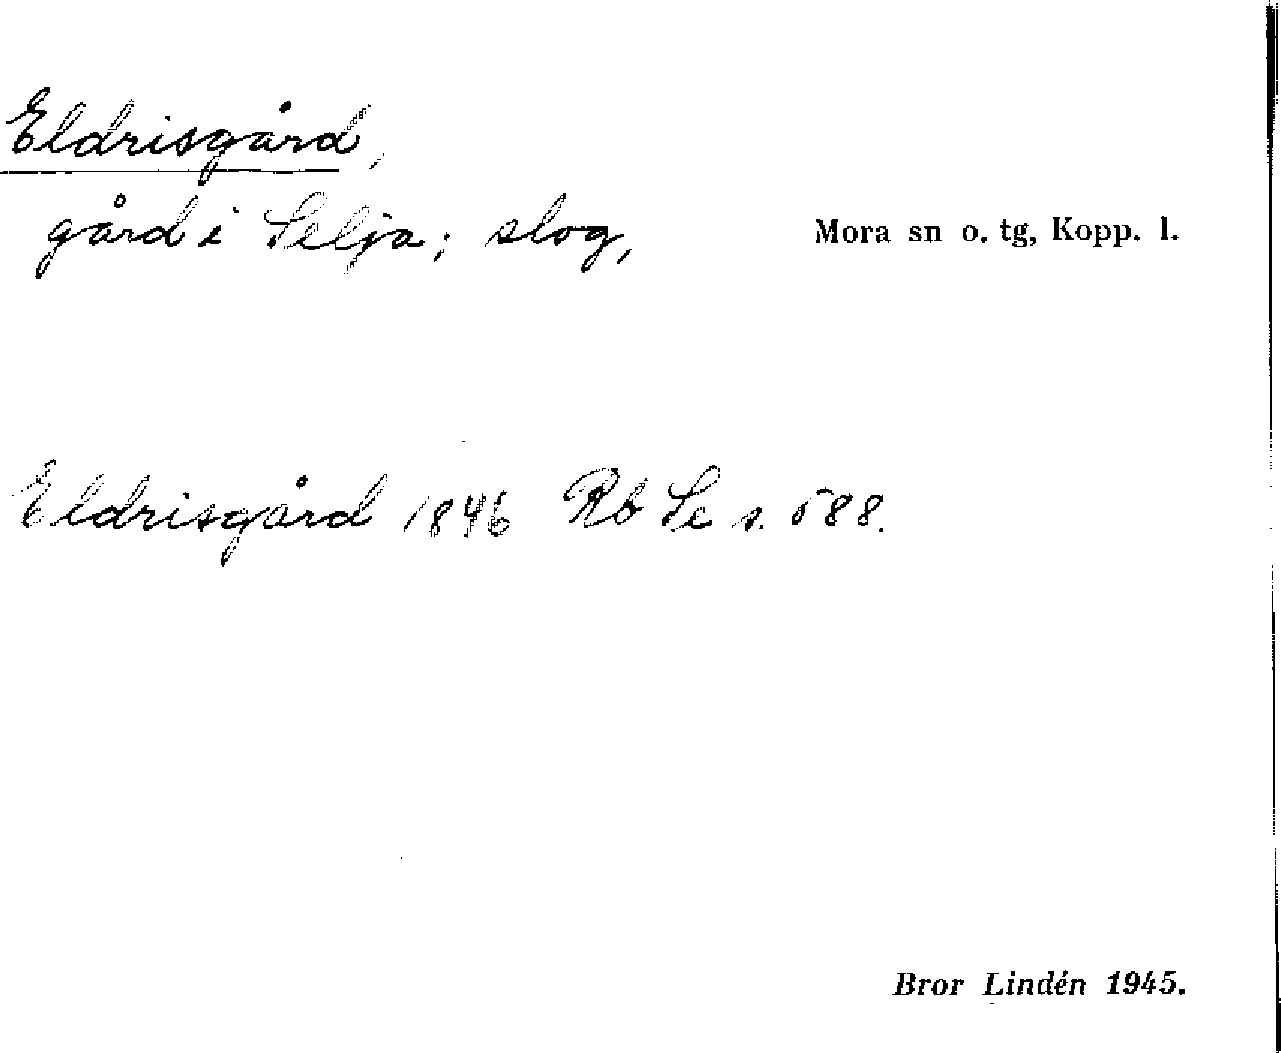 Eldrisgård,
gård i Selja; slog,
Mora sn o. tg, Kopp. l.
Eldrisgård 1846 Rb Se s. 588.
Bror Lindén 1945.